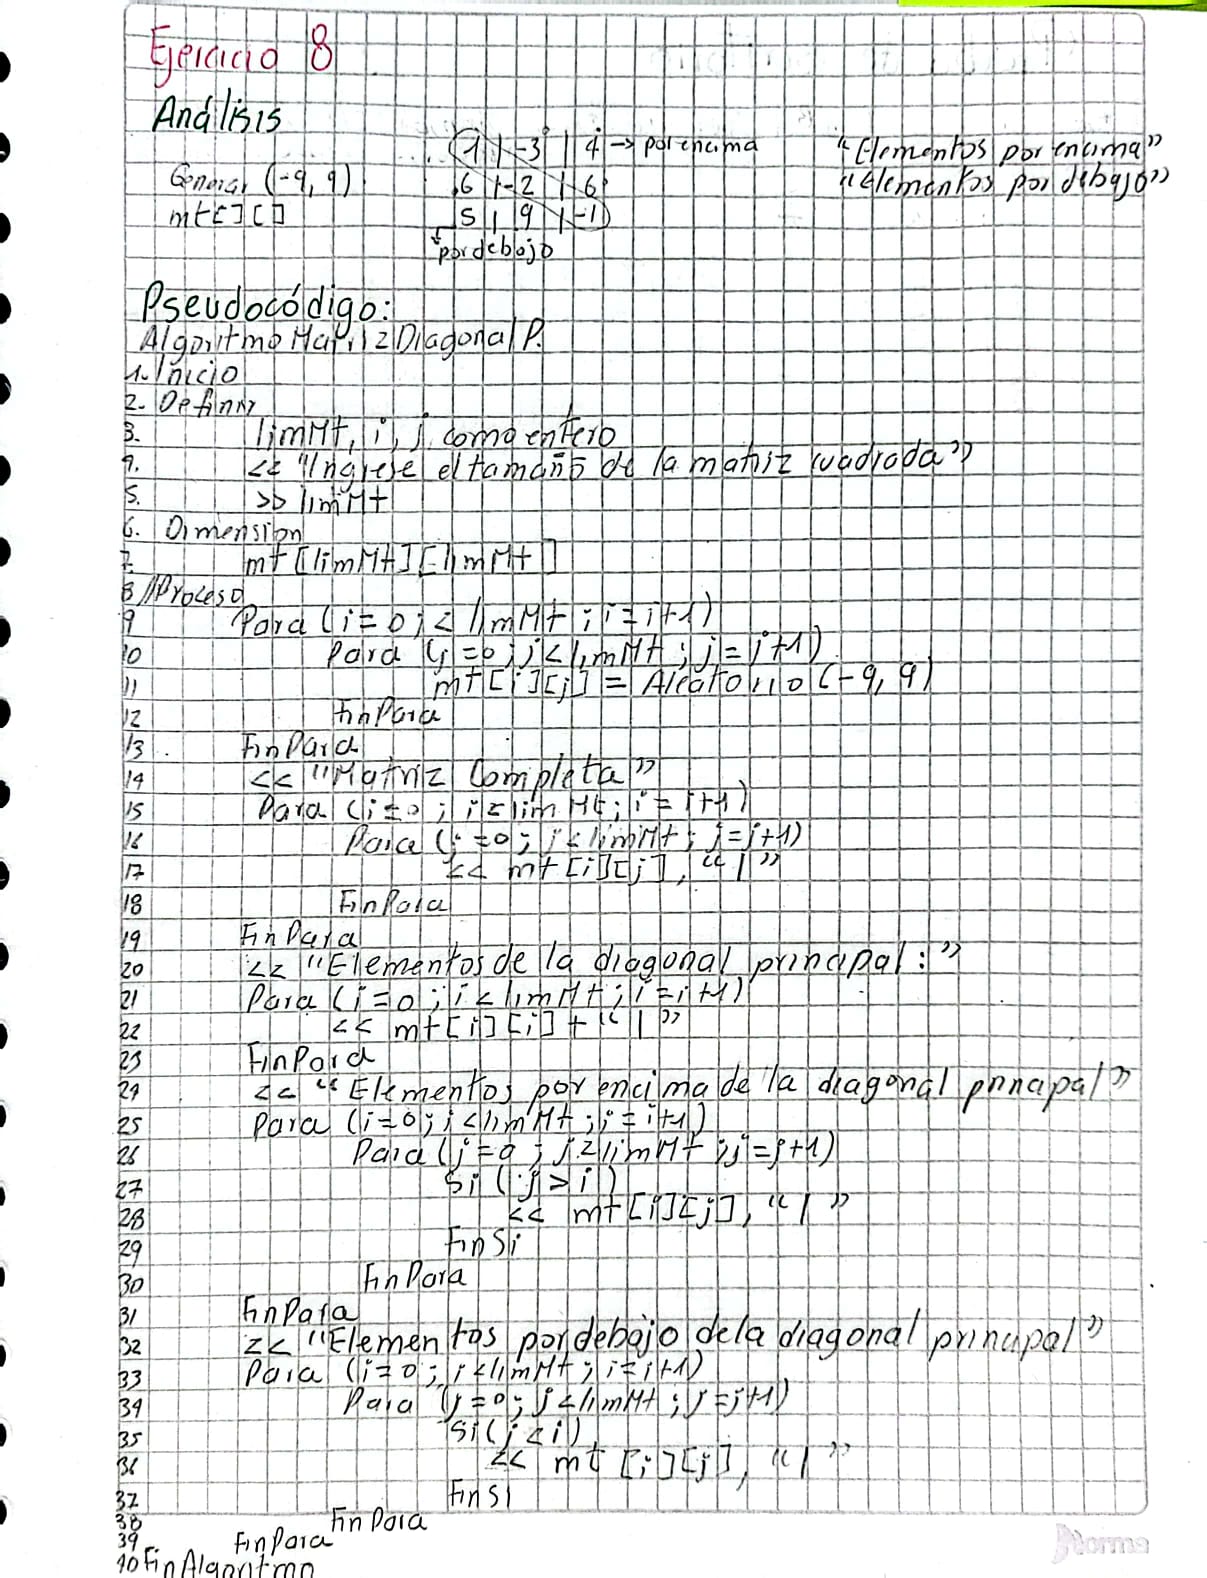 Ejercicio 8
Análisis
1 | -3 | 4 → por encima
"Elementos por encima"
Generar (-9, 9)
6 | -2 | 6
"Elementos por debajo"
mt[][]
5 | 9 | -1
por debajo
Pseudocódigo:
Algoritmo Matriz Diagonal P.
1. Inicio
2. Definir
3. limMt, i, j como entero
4. << "Ingrese el tamaño de la matriz cuadrada"
5. >> limMt
6. Dimension
7. mt [limMt][limMt]
8 //Proceso
9 Para (i=0; < limMt; i=i+1)
10 Para (j=0; j<limMt; j=j+1)
11 mt[i][j] = Aleatorio (-9, 9)
12 FinPara
13 FinPara
14 << "Matriz Completa"
15 Para (i=0; i<limMt; i=i+1)
16 Para (j=0; j<limMt; j=j+1)
17 << mt[i][j], "|"
18 FinPara
19 FinPara
20 << "Elementos de la diagonal principal:"
21 Para (i=0; i<limMt; i=i+1)
22 << mt[i][i] + "|"
23 FinPara
24 << "Elementos por encima de la diagonal principal"
25 Para (i=0; i<limMt; i=i+1)
26 Para (j=0; j<limMt; j=j+1)
27 Si (j>i)
28 << mt[i][j], "|"
29 FinSi
30 FinPara
31 FinPara
32 << "Elementos por debajo de la diagonal principal"
33 Para (i=0; i<limMt; i=i+1)
34 Para (j=0; j<limMt; j=j+1)
35 Si (j<i)
36 << mt [i][j], "|"
37 FinSi
38 FinPara
39 FinPara
40 FinAlgoritmo
Norma